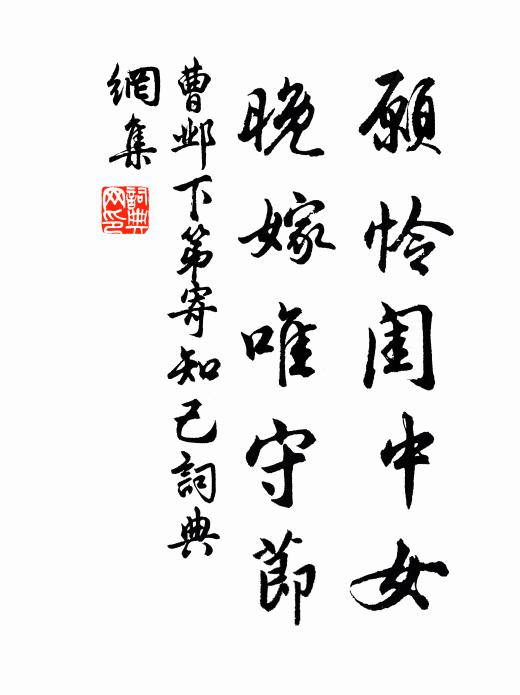 願怜闺中女
晚嫁唯守節
曹邺下第寄知己詞典
網集
詞典
网印